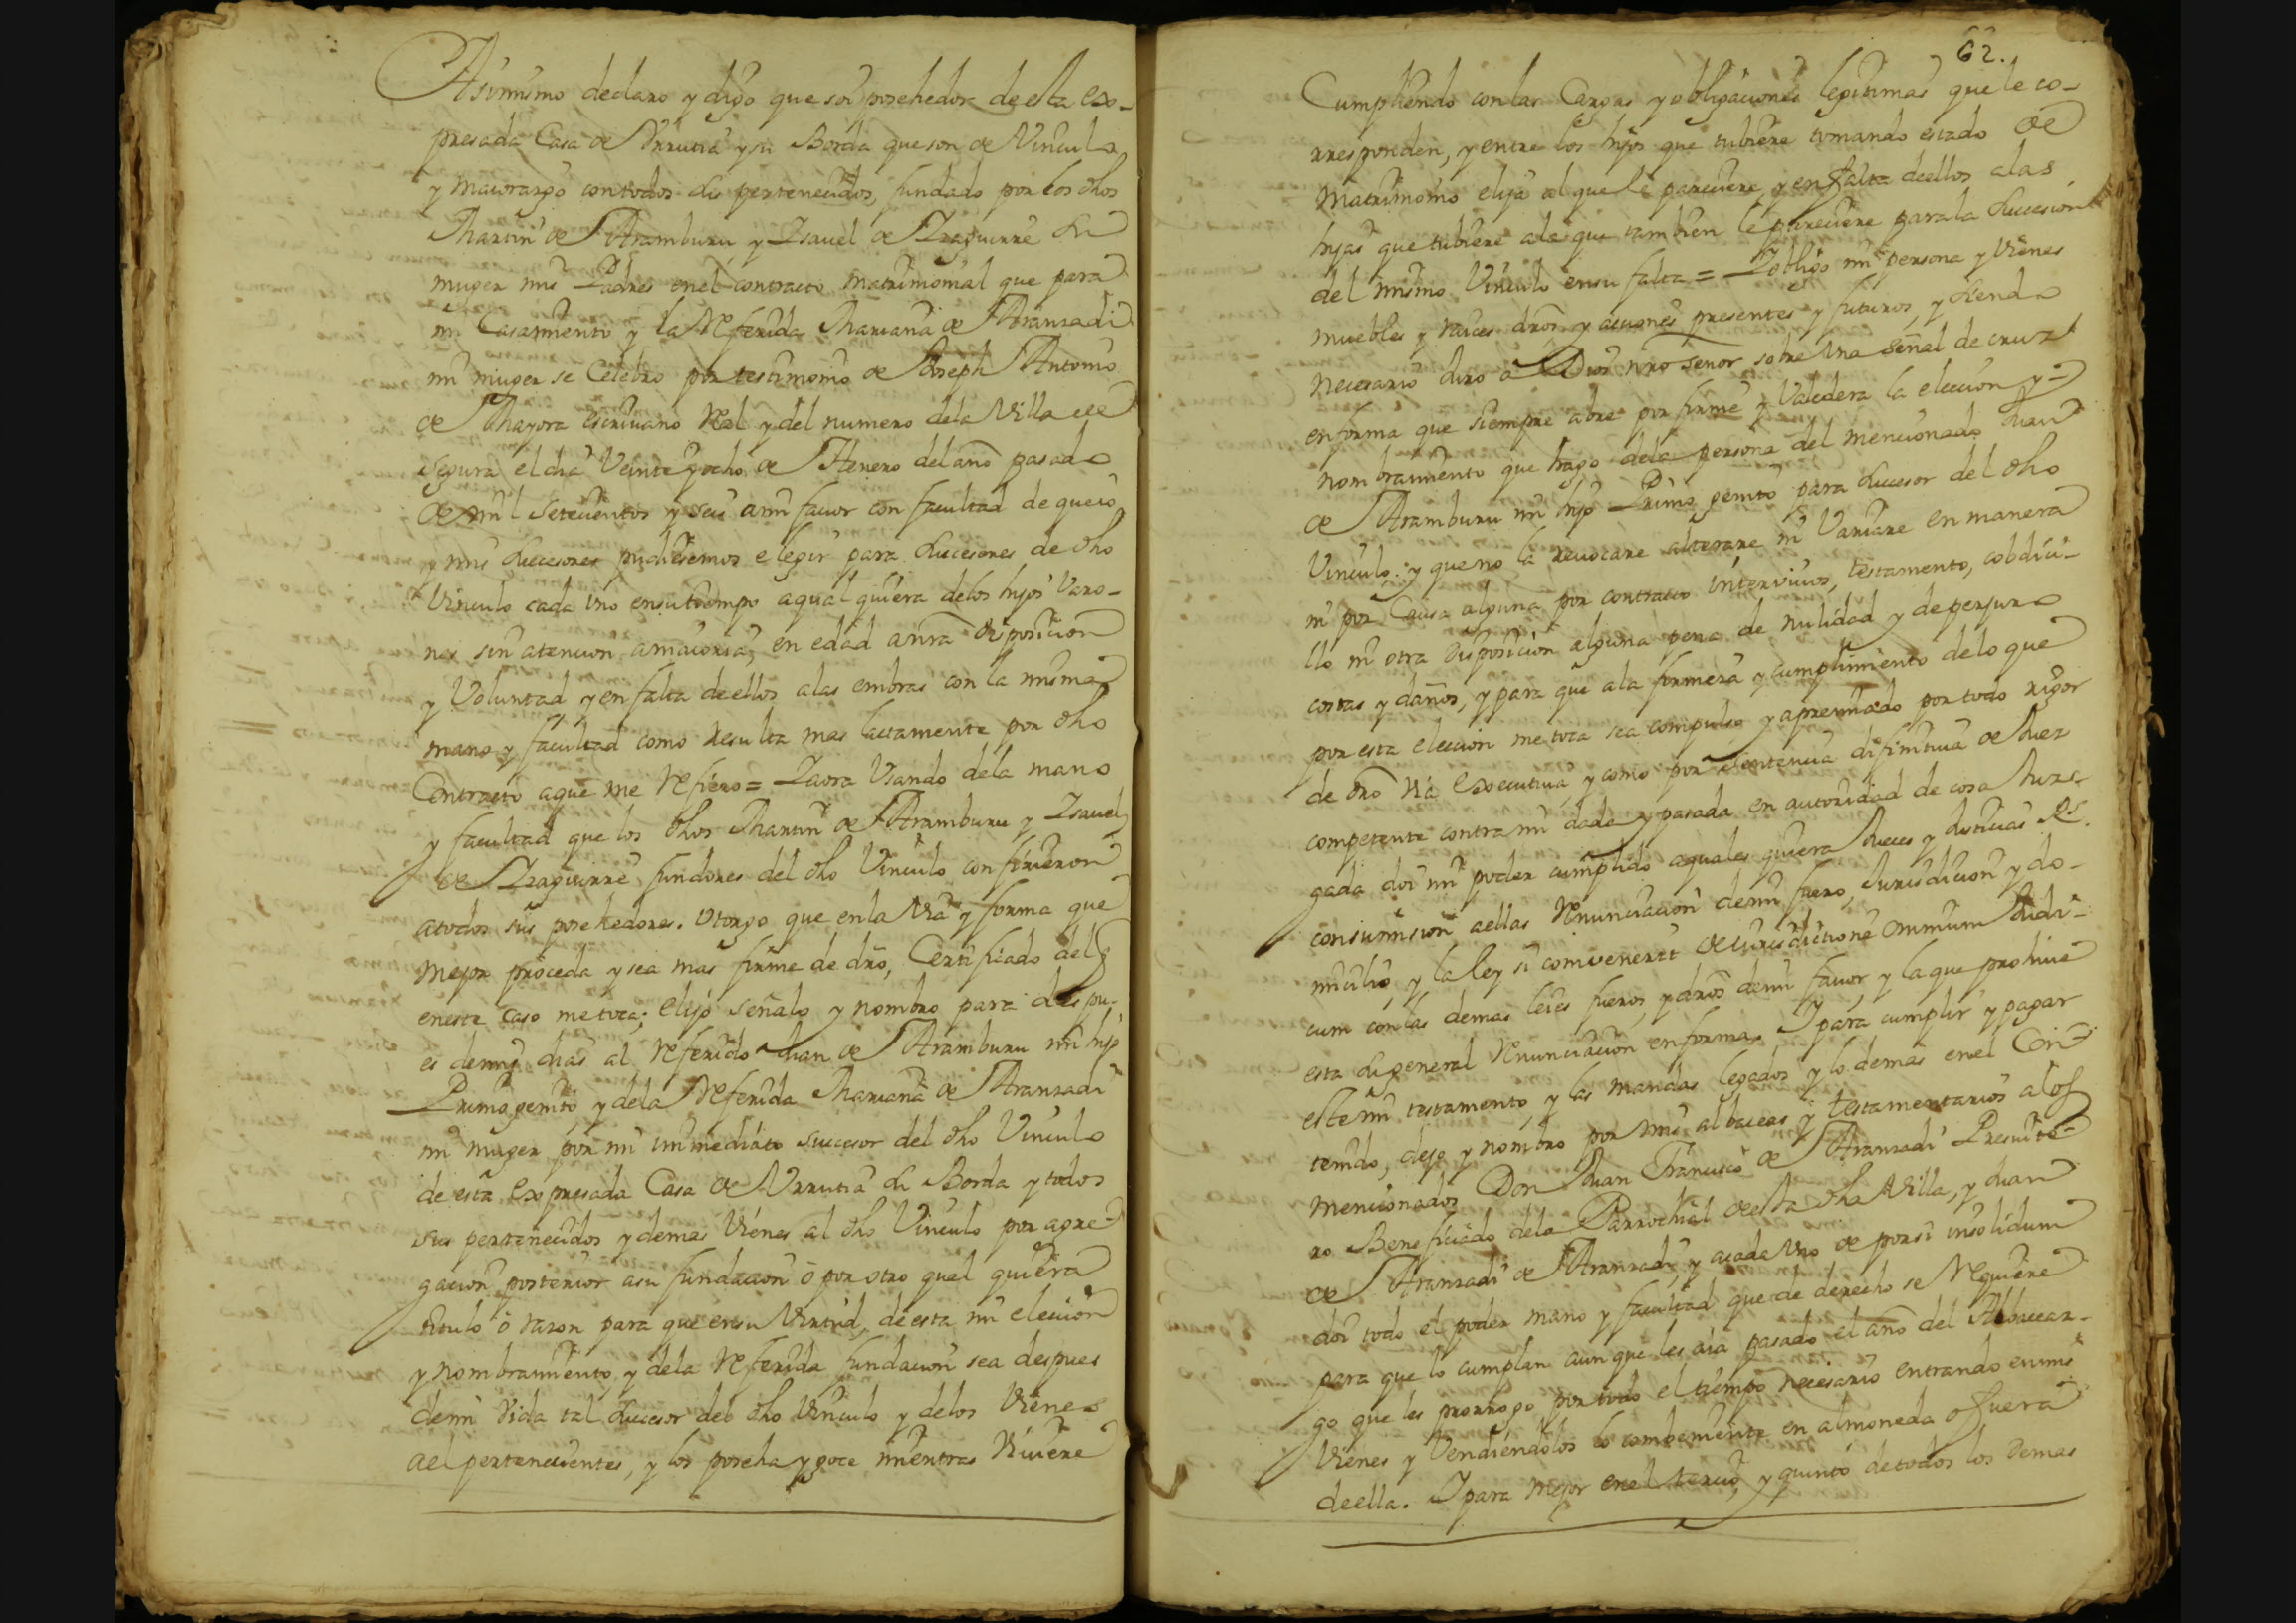 Asimismo declaro y digo que soi posehedor de esta exp-
presada Casa de Vrrutia y su Borda que son de Vinculo
y maiorazgo con todos sus pertenecidos, fundado por los dhos
Martin de Aramburu y Isauel de Yzaguirre su
muger mis Padres en el contracto matrimonial que para
mi Casamiento y la Referida Mariana de Aranzadi
mi muger se Celebro por testimonio de Joseph Antonio
de Mayora escriuano Real y del numero de la Villa de
Segura el dia Veinte y ocho de Henero del año pasado
de mil Setecientos y seis a mi fauor con facultad de que io
y mis Sucesores pudiesemos elegir para Sucesores de dho
Vinculo cada vno en su tiempo a qual quiera de los hijos Varo-
nes sin atencion a maioria, en edad a nra disposicion
y Voluntad y en falta de ellos a las embras con la misma
mano y facultad como Resulta mas lactamente por dho
Contracto a que me Refiero = Y aora Vsando de la mano
y facultad que los dhos Martin de Aramburu y Isauel
de Yzaguirre fundores del dho Vinculo confirieron
a todos sus posehedores. Otorgo que en la Via y forma que
mejor proceda y sea mas firme de dro, Certificado del q
en este caso me toca; elijo señalo y nombro para despu-
es de mis dias al Referido Juan de Aramburu mi hijo
Primogenito y de la Referida Mariana de Aranzadi
mi muger por mi immediato succesor del dho Vinculo
de esta Expresada Casa de Vrrutia su Borda y todos
sus pertenecidos y demas Vienes al dho Vinculo por agre-
gacion posterior a su fundacion ó por otro qual quiera
titulo ó razon para que en su Virtud, de esta mi eleccion
y nombramiento, y de la Referida fundacion sea despues
de mi Vida tal Sucesor del dho Vinculo y de los Vienes
a el pertenecientes, y los poseha y goce mientras Viuiere
62.
Cumpliendo con las Cargas y obligaciones legitimas que le co-
rresponden, y entre los hijos que tubiere tomando estado de
Matrimonio elija al que le pareciere, y en falta de ellos a las
hijas que tubiere a la que tambien le pareciere para la Sucesion
del mismo Vinculo en su falta = Y obligo mi persona y Vienes
muebles y raices dros y acciones presentes y futuros, y siendo
necesario Juro a Dios nro señor, sobre Vna señal de cruz
en forma que siempre abre por firme y Valedera la eleccion y
nombramiento que hago de la persona del mencionado Juan
de Aramburu mi hijo Primo genito para Sucesor del dho
Vinculo: y que no la reuocare alterare ni Variare en manera
ni por Causa alguna por contracto interviuos, testamento, cobdici-
llo ni otra disposicion alguna pena de nulidad y de perjuro
costas y daños, y para que a la firmeza y cumplimiento de lo que
por esta eleccion me toca sea compulso y apremiado por todo rigor
de dro Via Executiua, y como por sentencia difinitiua de Juez
competente contra mi dada y pasada en autoridad de cosa Juz-
gada doi mi poder cumplido a quales quiera Jueces y Justicias &ª.
con sumision a ellas Renunciacion de mi fuero, Jurisdicion y do-
micilio, y la ley si convenerit de iurisdictione omnium Judi-
cum con las demas leies fueros, y dros de mi fauor, y la que prohiue
esta di general Renunciacion en forma. Y para cumplir y pagar
este mi testamento, y las mandas legados y lo demas en el Con-
tenido, dejo y nombro por mis albaceas y testamentarios a los
mencionados Don Juan Francisco de Aranzadi Presuite-
ro Beneficiado de la Parrochial de esta dha Villa, y Juan
de Aranzadi de Aranzadi, y a cada vno de por si insolidum
doi todo el poder mano y facultad que de derecho se Requiere
para que lo cumplan aun que les aia pasado el año del Albaceaz-
go que les prorrogo por todo el tiempo necesario entrando en mis
Vienes y Vendiendolos lo combeniente en almoneda o fuera
de ella. Y para mejor en el tercio, y quinto de todos los demas